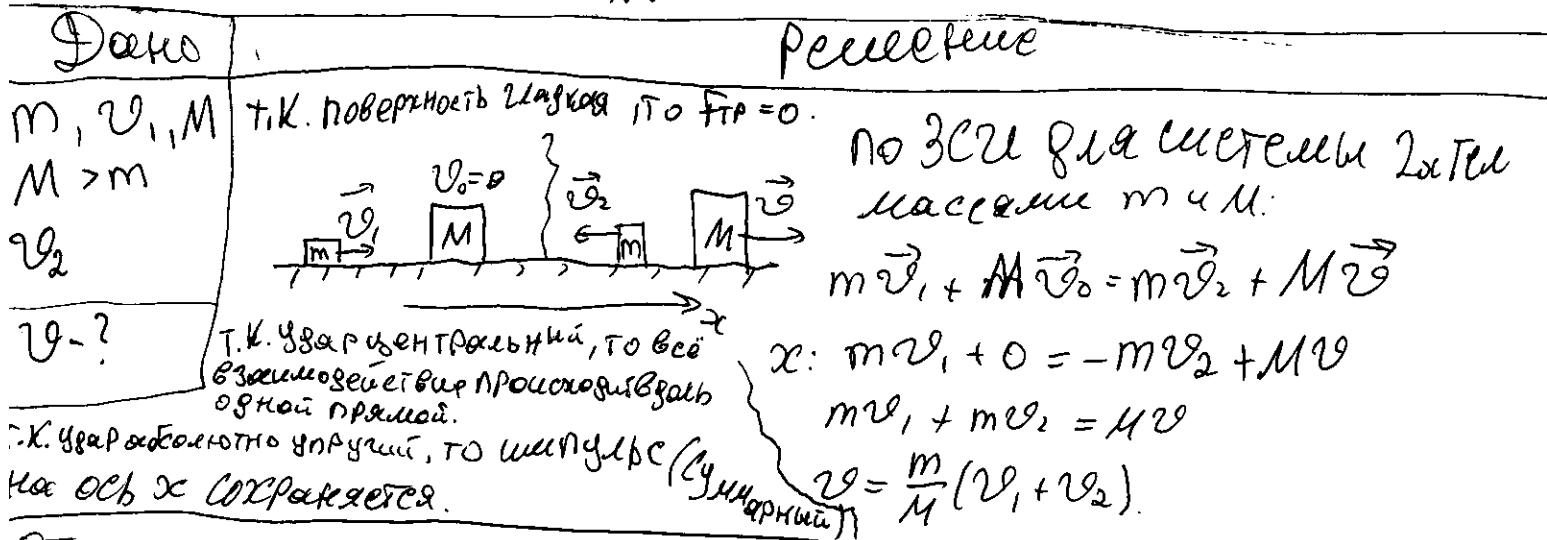 Дано
Решение
m, υ₁, M
M > m
υ₂
υ - ?
т.к. поверхность гладкая, то Fтр = 0.
υ₀ = 0
υ⃗₁
υ⃗₂
υ⃗
m
M
m
M
x
Т.К. удар центральный, то всё
взаимодействие происходит вдоль
одной прямой.
Т.К. удар абсолютно упругий, то импульс (суммарный)
на ось x сохраняется.
по ЗСИ для системы 2х тел
массами m и M:
mυ⃗₁ + Mυ⃗₀ = mυ⃗₂ + Mυ⃗
x: mυ₁ + 0 = -mυ₂ + Mυ
mυ₁ + mυ₂ = Mυ
υ = m/M (υ₁ + υ₂).